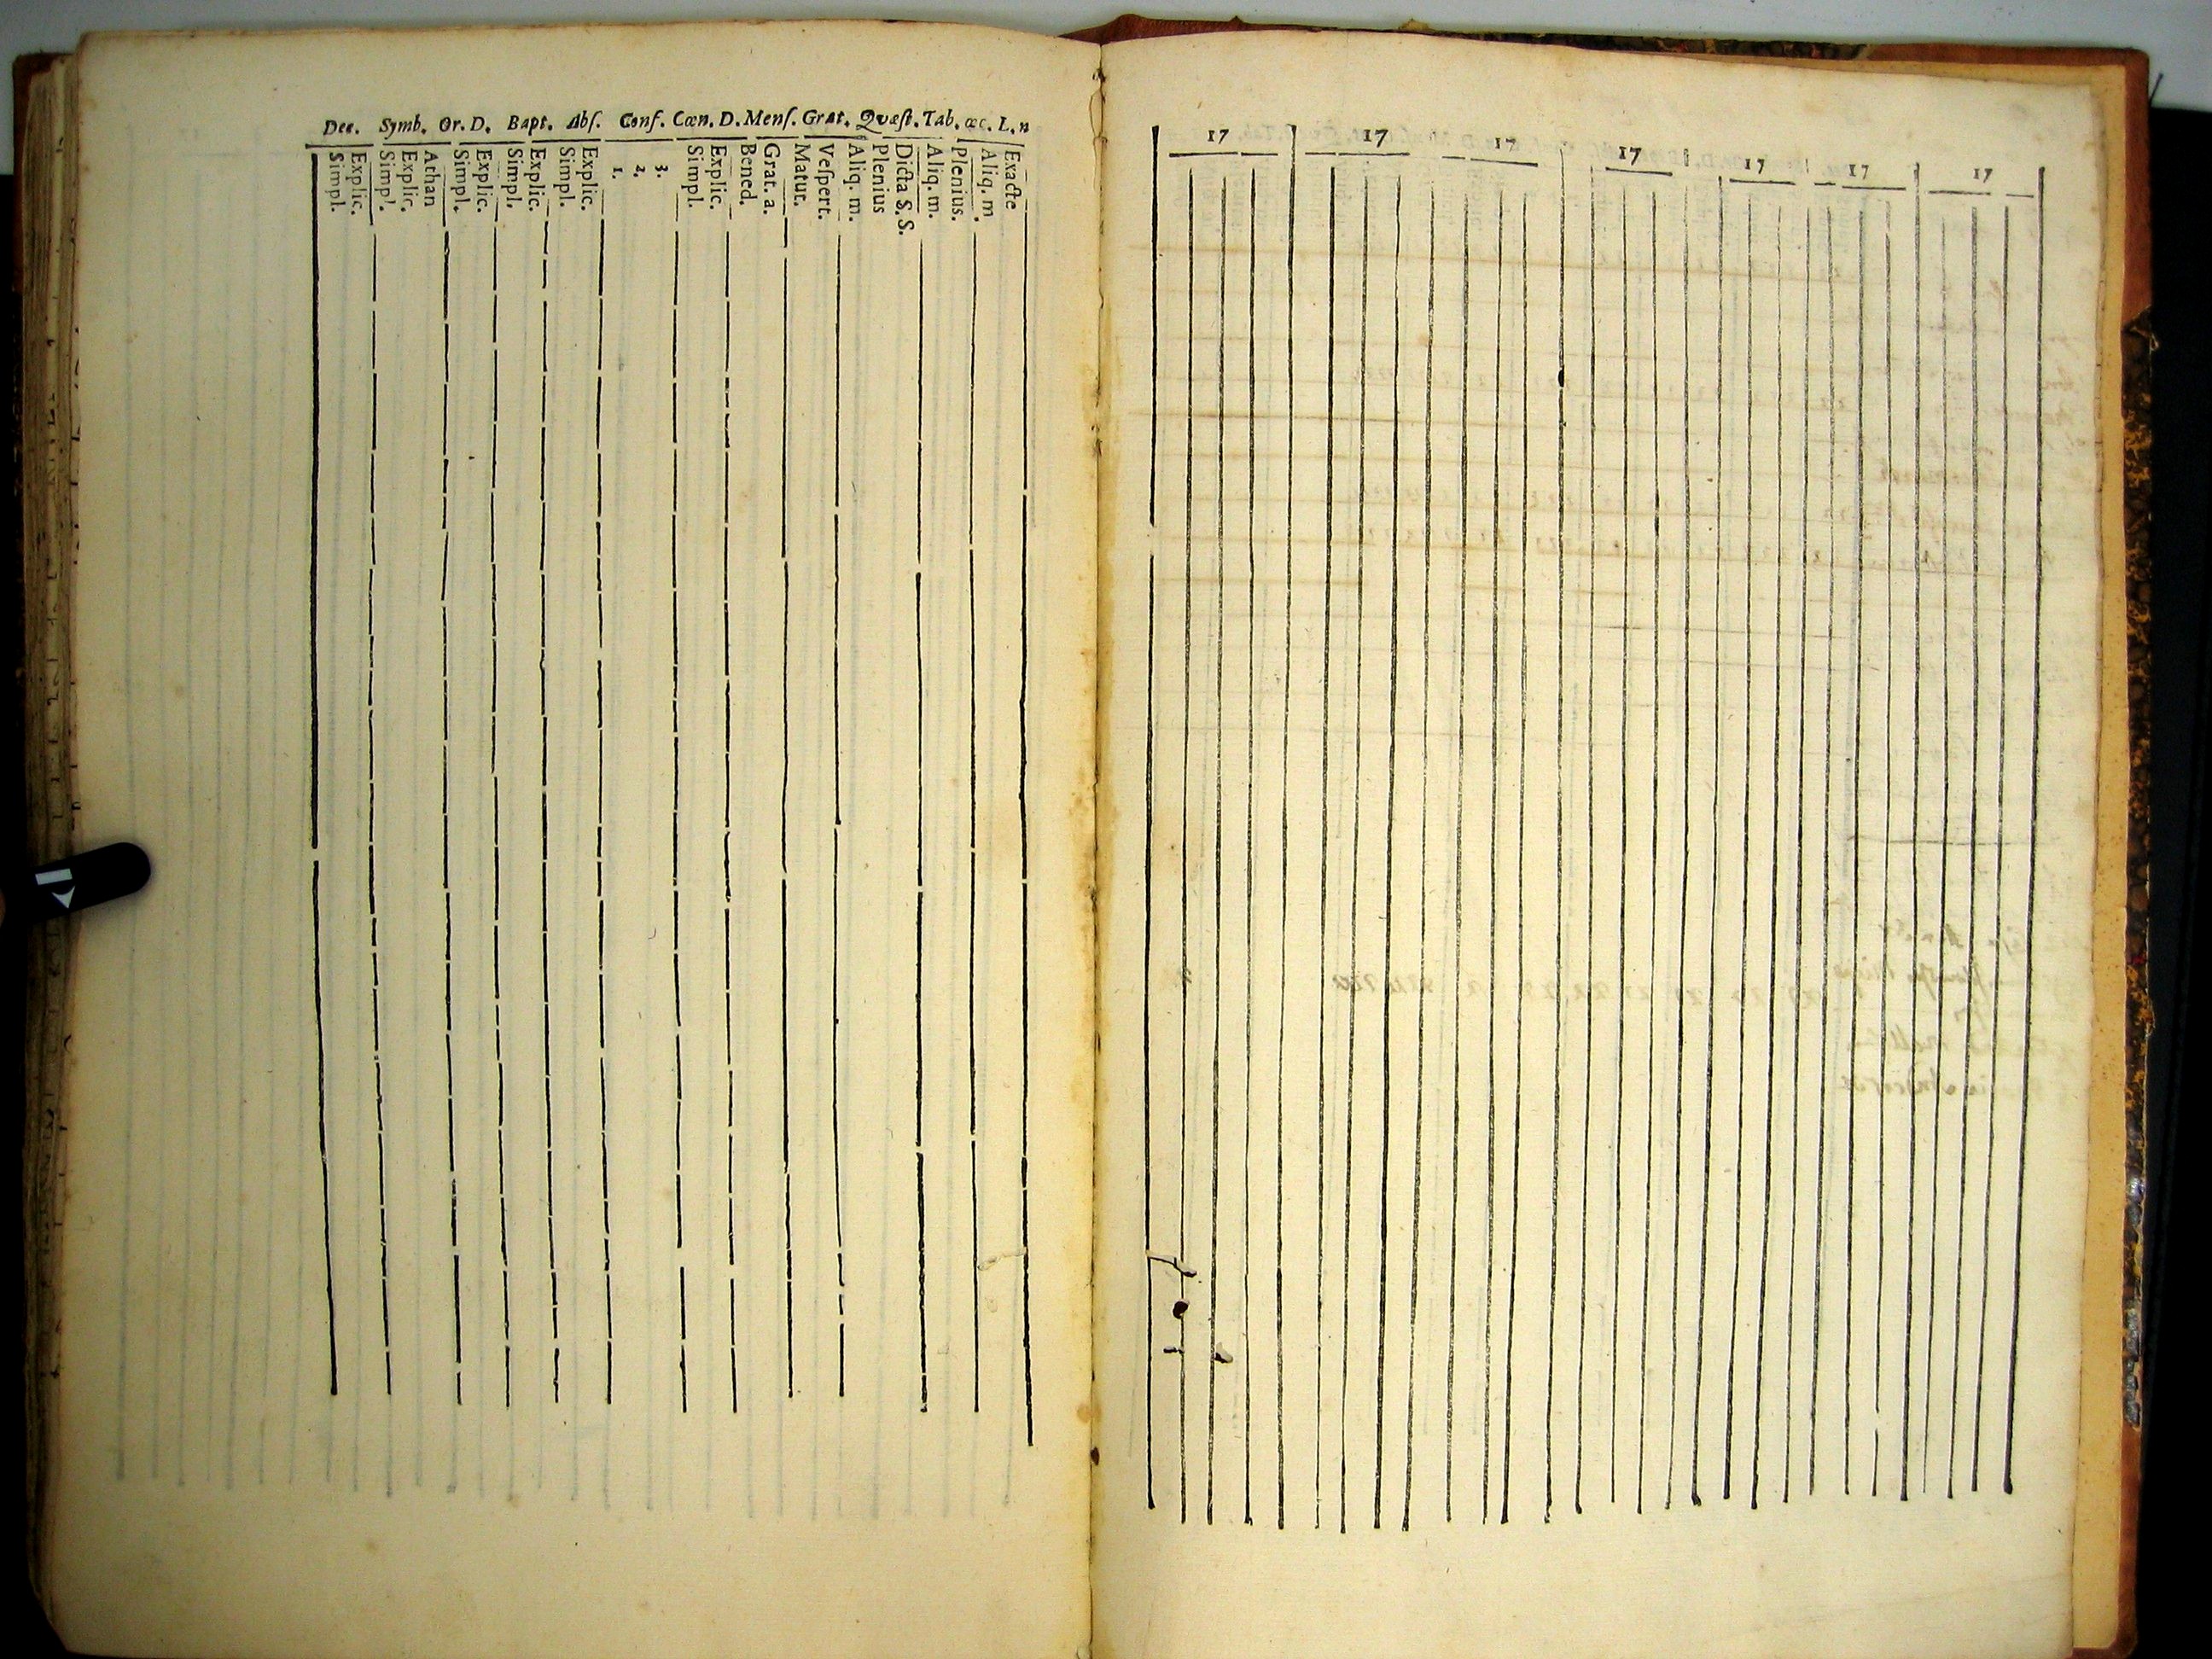 Dec. Symb. Or. D. Bapt. Abſ. Conf. Cœn. D. Menſ. Grat. Qvæſt. Tab. œc. L. n
Simpl.
Explic.
Simpl.
Explic.
Athan
Simpl.
Explic.
Simpl.
Explic.
Simpl.
Explic.
1.
2.
3.
Simpl.
Explic.
Bened.
Grat. a.
Matut.
Veſpert.
Aliq. m.
Plenius
Dicta S. S.
Aliq. m.
Plenius.
Aliq. m.
Exacte
17 17 17 17 17 17 17